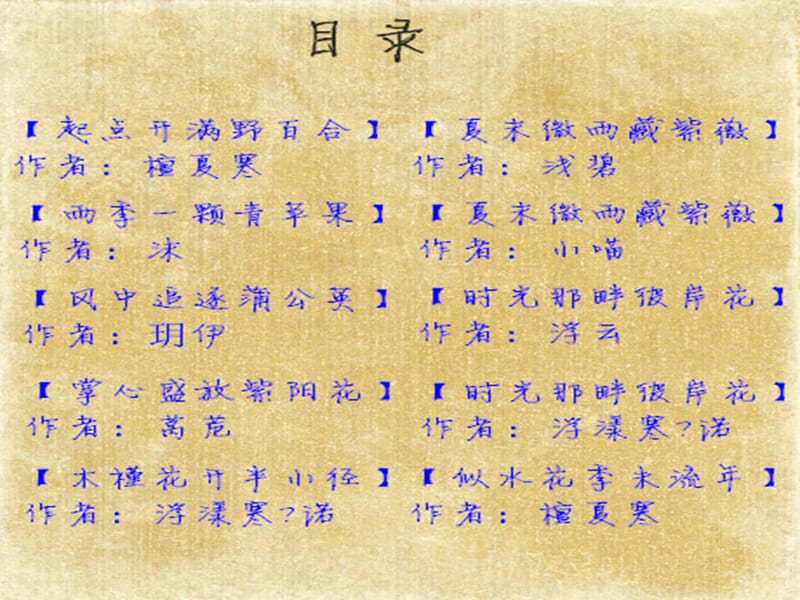 目录
【起点开满野百合】
作者：檀夏寒
【两季一颗青苹果】
作者：沫
【风中追逐蒲公英】
作者：玥伊
【掌心盛放紫阳花】
作者：莴苊
【木槿花开半小径】
作者：浮漾寒?诺
【夏末微雨藏紫薇】
作者：浅碧
【夏末微雨藏紫薇】
作者：小喵
【时光那畔彼岸花】
作者：浮云
【时光那畔彼岸花】
作者：浮漾寒?诺
【似水花季未流年】
作者：檀夏寒